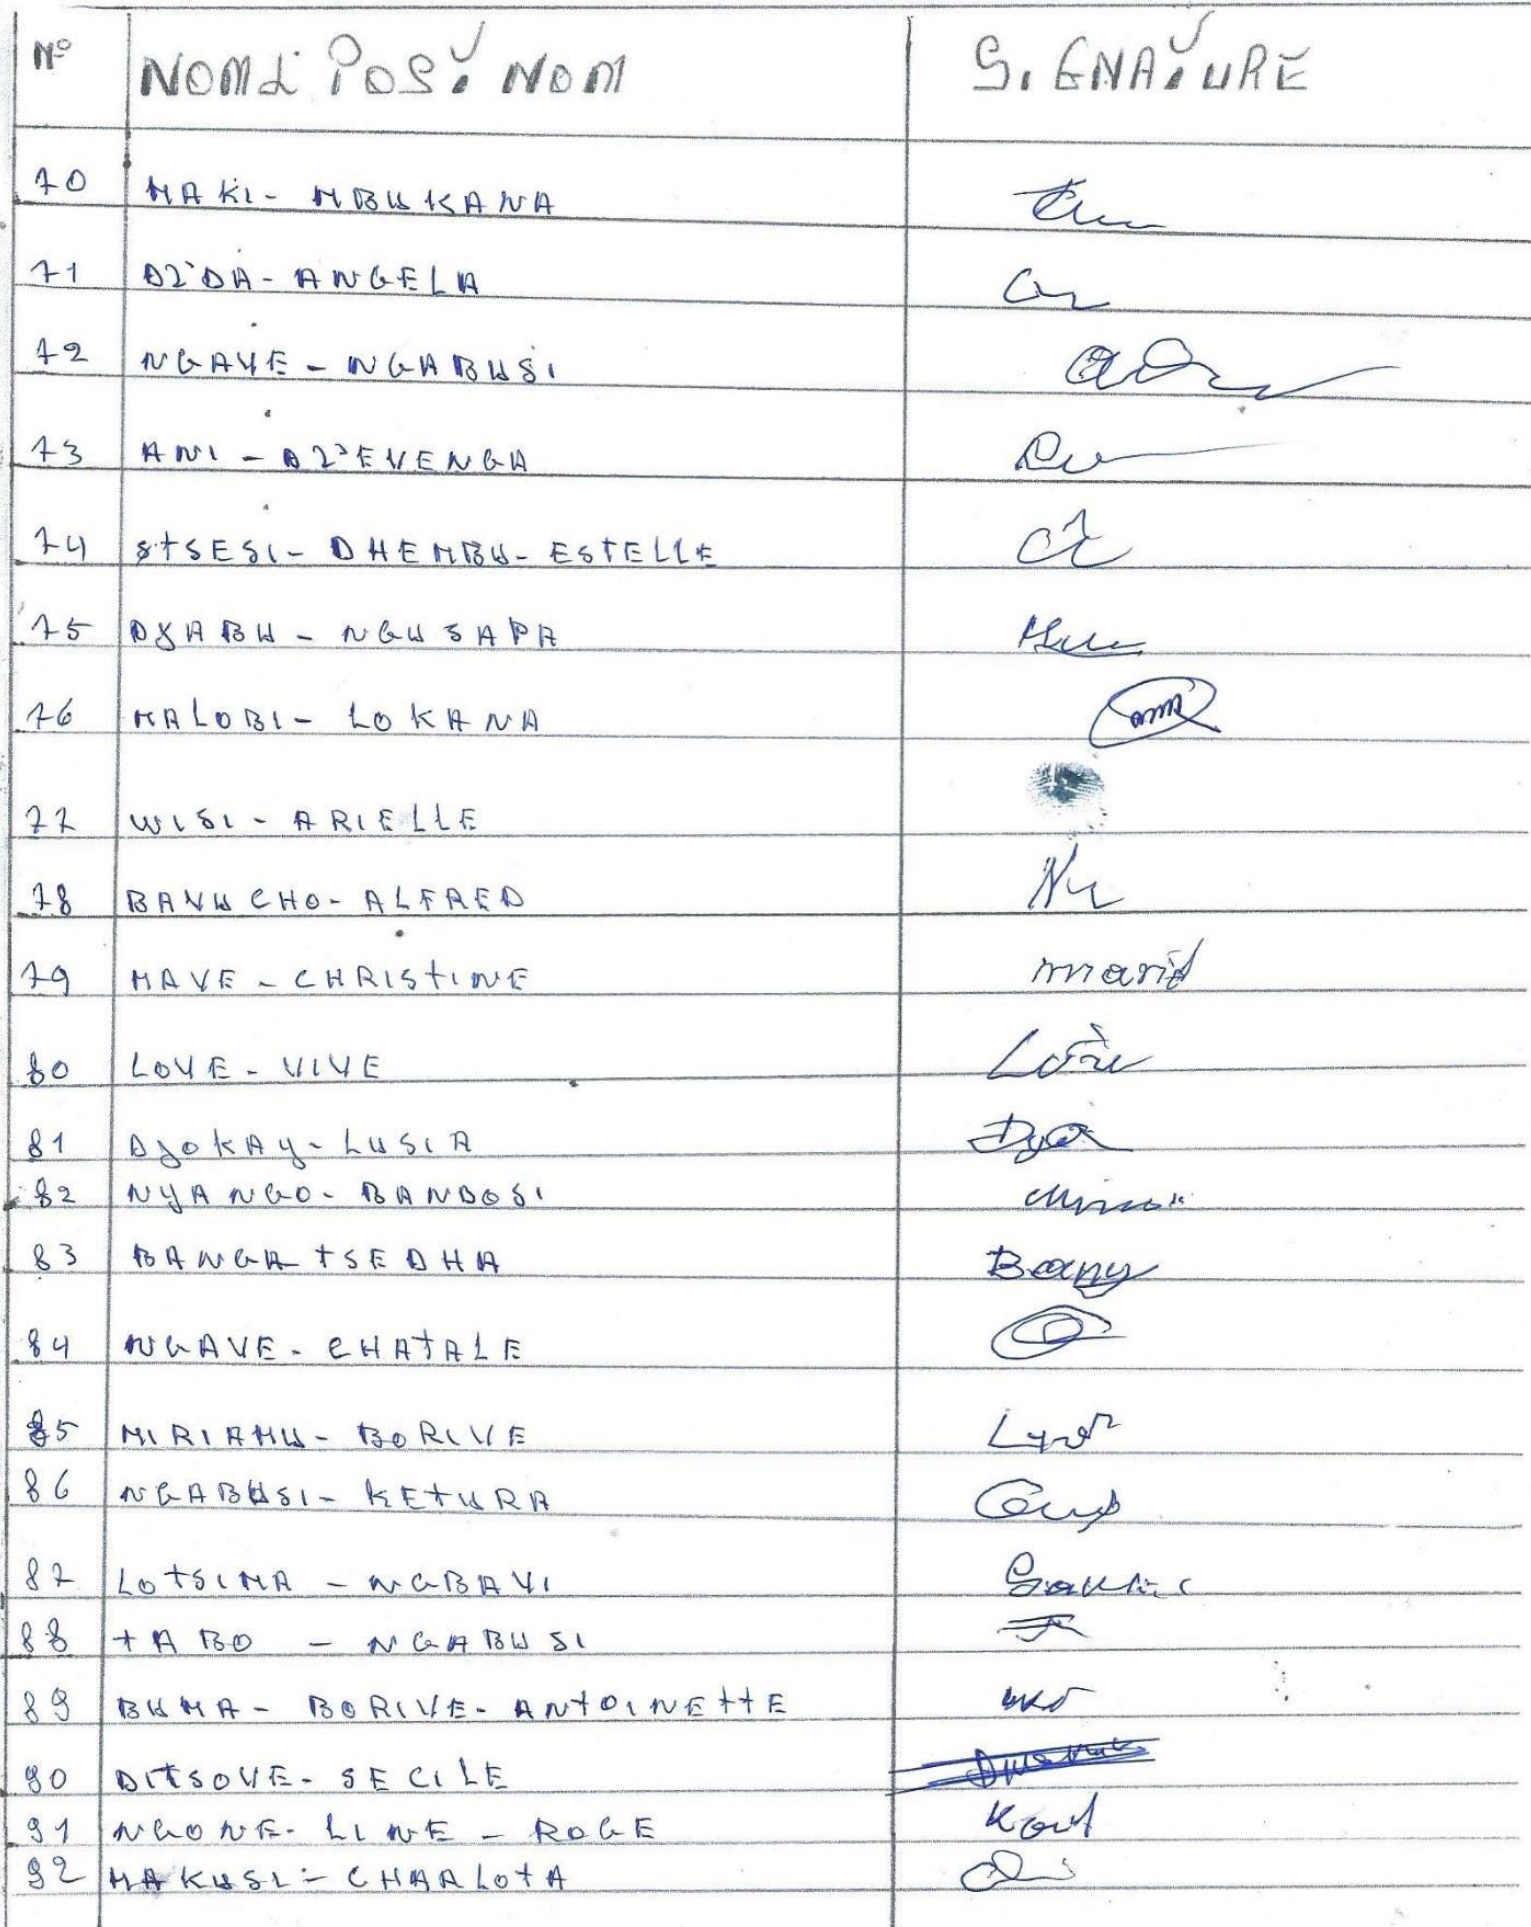 N° NOM & POST NOM SIGNATURE
70 MAKI - MBUKANA
71 DZ'DA - ANGELA
72 NGAYE - NGABUSI
73 ANI - DZ'EVENGA
74 STSESI - DHEMBU - ESTELLE
75 DJABU - NGUSAPA
76 MALOBI - LOKANA
77 WISI - ARIELLE
78 BAVUCHO - ALFRED
79 MAVE - CHRISTINE marie
80 LOVE - VIVE
81 DJOKAY - LUSIA
82 NYANGO - BANDOSI
83 BANGA TSEDHA Bany
84 NGAVE - CHATALE
85 MIRIAMU - BORIVE
86 NGABUSI - KETURA
87 LOTSIMA - NGBAVI
88 TABO - NGABUSI
89 BUMA - BORIVE - ANTOINETTE
90 DITSOVE - SECILE
91 NGONE - LINE - ROGE
92 MAKUSI - CHARLOTA